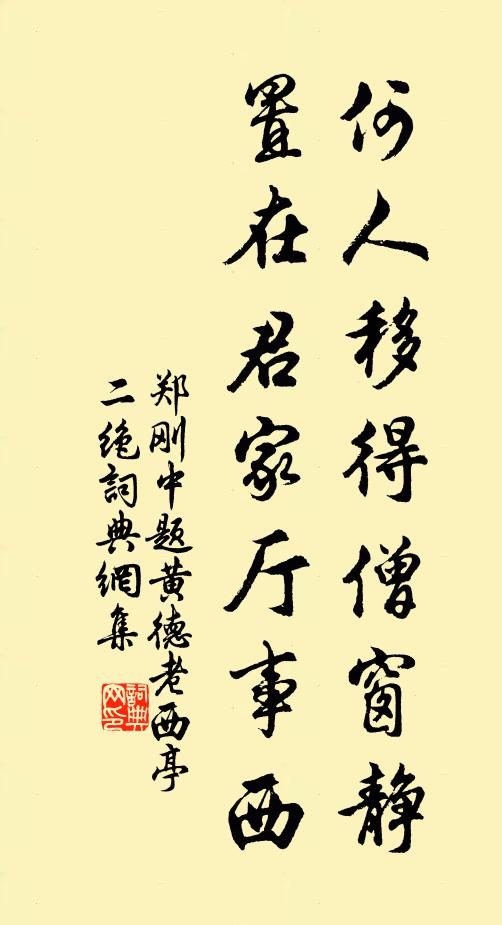 何人移得僧窗静
置在君家厅事西
郑刚中题黄德老西亭
二绝詞典網集
詞典网印